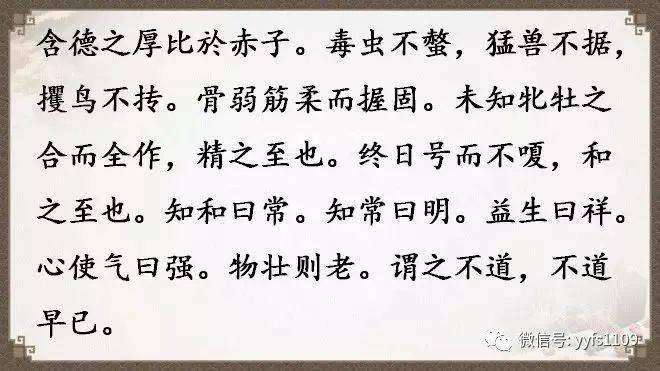 含德之厚比於赤子。毒虫不螫，猛兽不据，
攫鸟不抟。骨弱筋柔而握固。未知牝牡之
合而全作，精之至也。终日号而不嗄，和
之至也。知和曰常。知常曰明。益生曰祥。
心使气曰强。物壮则老。谓之不道，不道
早已。
微信号: yyfs1109